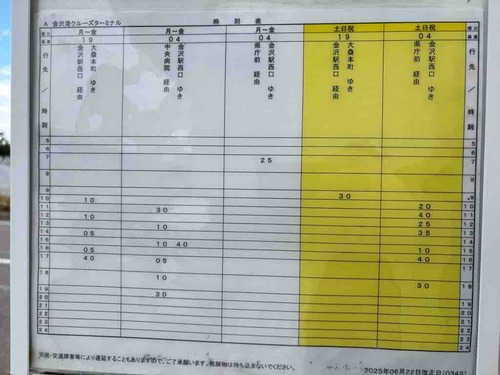 A 金沢港クルーズターミナル 時刻表
曜日 月~金 月~金 月~金 土日祝 土日祝 曜日
系統 19 04 04 19 04 系統
行先/時刻
大桑本町 ゆき
金沢駅西口 経由
金沢駅西口 ゆき
中央病院 経由
金沢駅西口 ゆき
県庁前 経由
大桑本町 ゆき
金沢駅西口 経由
金沢駅西口 ゆき
県庁前 経由
行先/時刻
5 5
6 6
7 25 7
8 8
9 30 9
10 10 20 10
11 30 40 11
12 10 25 12
13 10 35 13
14 05 14
15 10 40 15
16 05 40 16
17 40 05 17
18 10 30 18
19 30 19
20 20
21 21
22 22
23 23
24 24
天候・交通障害等により遅延することもありますので、ご了承願います。危険物は持ち込まないでください。
2025年06月22日改正日(0345)